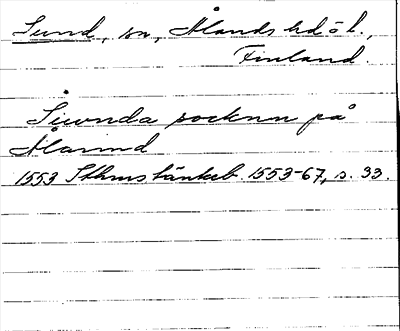 Sund, sn, Ålands hd o l.,
Finland.
Siwnda socknn på
Ålannd
1553 Sthms tänkeb. 1553-67, s. 33.